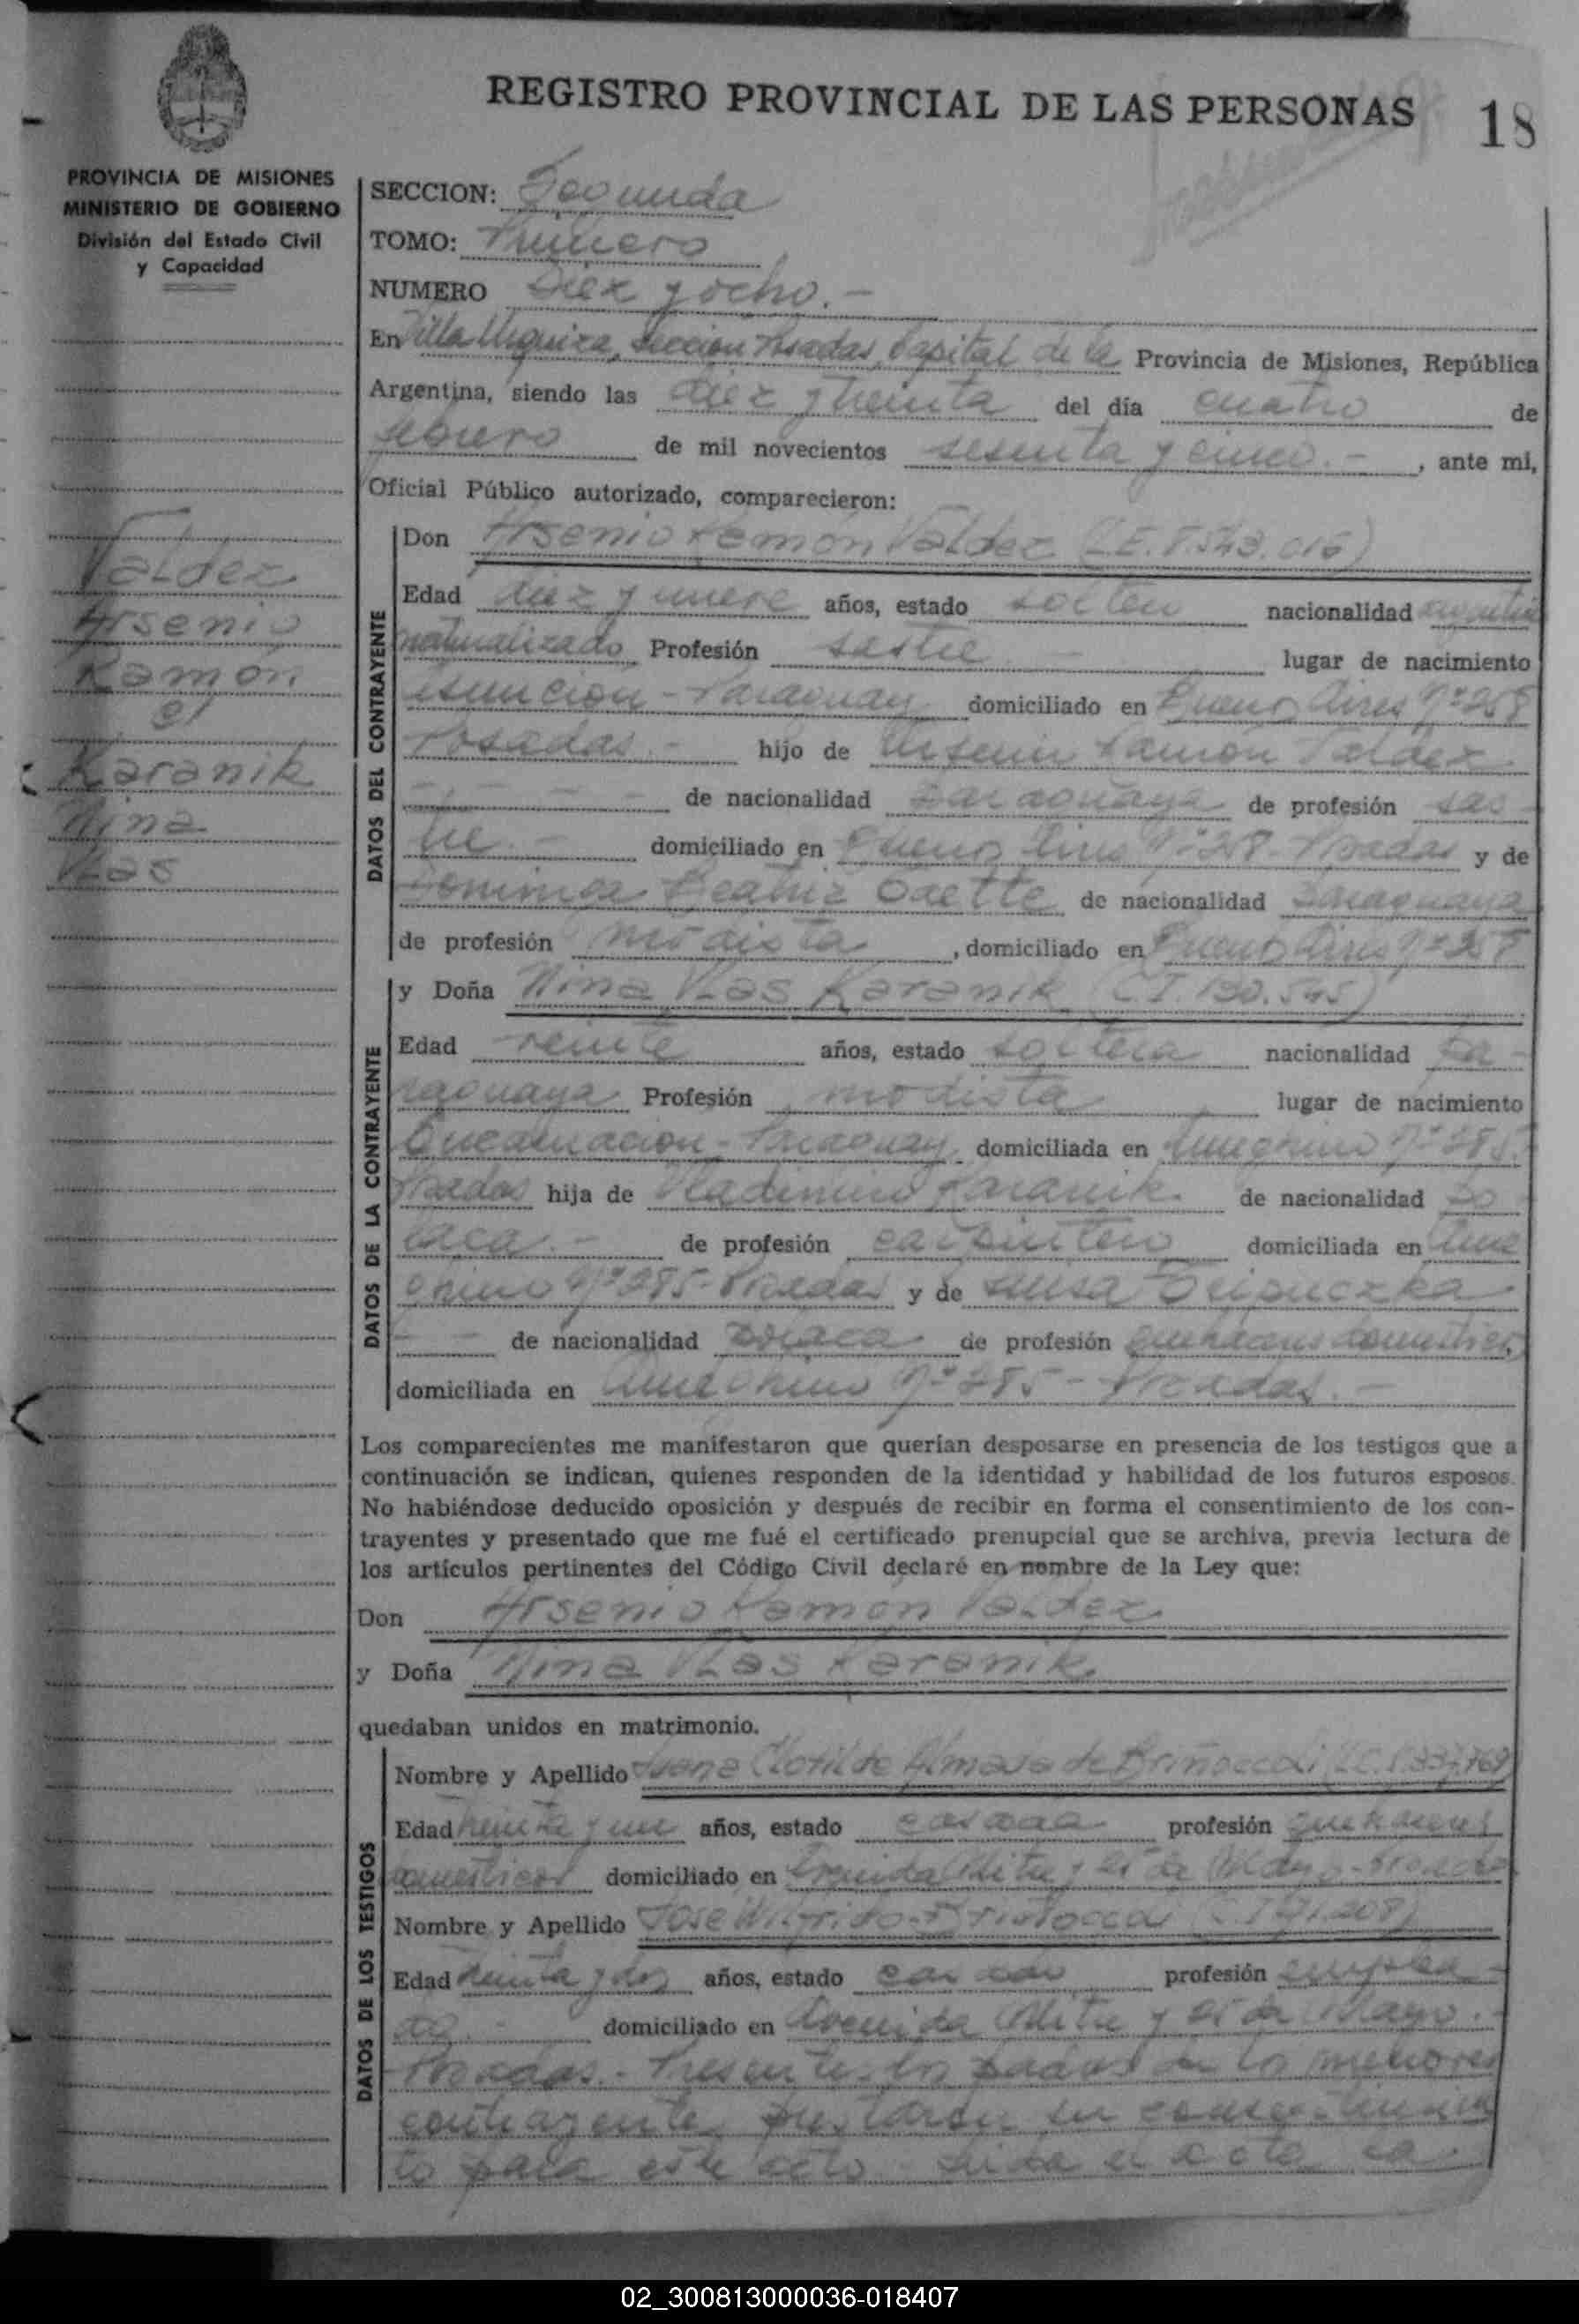 REGISTRO PROVINCIAL DE LAS PERSONAS
18
PROVINCIA DE MISIONES
MINISTERIO DE GOBIERNO
División del Estado Civil
y Capacidad
SECCION: Segunda
TOMO: Primero
NUMERO Diez y ocho.-
En Villa Urquiza, Sección Posadas, Capital de la Provincia de Misiones, República
Argentina, siendo las diez y treinta del día cuatro de
febrero de mil novecientos sesenta y cinco.- , ante mi,
Oficial Público autorizado, comparecieron:
Valdez
Arsenio
Ramón
el
Karanik
Nina
Vlas
DATOS DEL CONTRAYENTE
Don Arsenio Ramón Valdez
Edad diez y nueve años, estado soltero nacionalidad argentino
naturalizado Profesión sastre lugar de nacimiento
Asunción - Paraguay domiciliado en Buenos Aires Nº 258
Posadas.- hijo de Arsenio Ramón Valdez
de nacionalidad paraguaya de profesión sas-
tre.- domiciliado en Buenos Aires Nº 258 - Posadas y de
Beatriz de nacionalidad paraguaya
de profesión modista , domiciliado en Buenos Aires Nº 258
DATOS DE LA CONTRAYENTE
y Doña Nina Vlas Karanik (C.I. 130.545)
Edad veinte años, estado soltera nacionalidad pa-
raguaya Profesión modista lugar de nacimiento
Encarnación - Paraguay domiciliada en Ameghino Nº 285
Posadas hija de Vladimiro Karanik de nacionalidad po-
laca.- de profesión carpintero domiciliada en Ame
ghino Nº 285 - Posadas y de
de nacionalidad polaca de profesión quehaceres domésticos,
domiciliada en Ameghino Nº 285 - Posadas.-
Los comparecientes me manifestaron que querían desposarse en presencia de los testigos que a
continuación se indican, quienes responden de la identidad y habilidad de los futuros esposos.
No habiéndose deducido oposición y después de recibir en forma el consentimiento de los con-
trayentes y presentado que me fué el certificado prenupcial que se archiva, previa lectura de
los artículos pertinentes del Código Civil declaré en nombre de la Ley que:
Don Arsenio Ramón Valdez
y Doña Nina Vlas Karanik
quedaban unidos en matrimonio.
DATOS DE LOS TESTIGOS
Nombre y Apellido Juana Clotilde de
Edad treinta y un años, estado casada profesión quehaceres
domésticos domiciliado en Avenida Mitre y 25 de Mayo - Posadas
Nombre y Apellido José Wilfrido
Edad treinta y dos años, estado casado profesión emplea-
do.- domiciliado en Avenida Mitre y 25 de Mayo.-
Posadas.- Presente los padres de los menores
contrayente prestaron su consentimien
to para este acto.- Leida el acta la
02_300813000036-018407